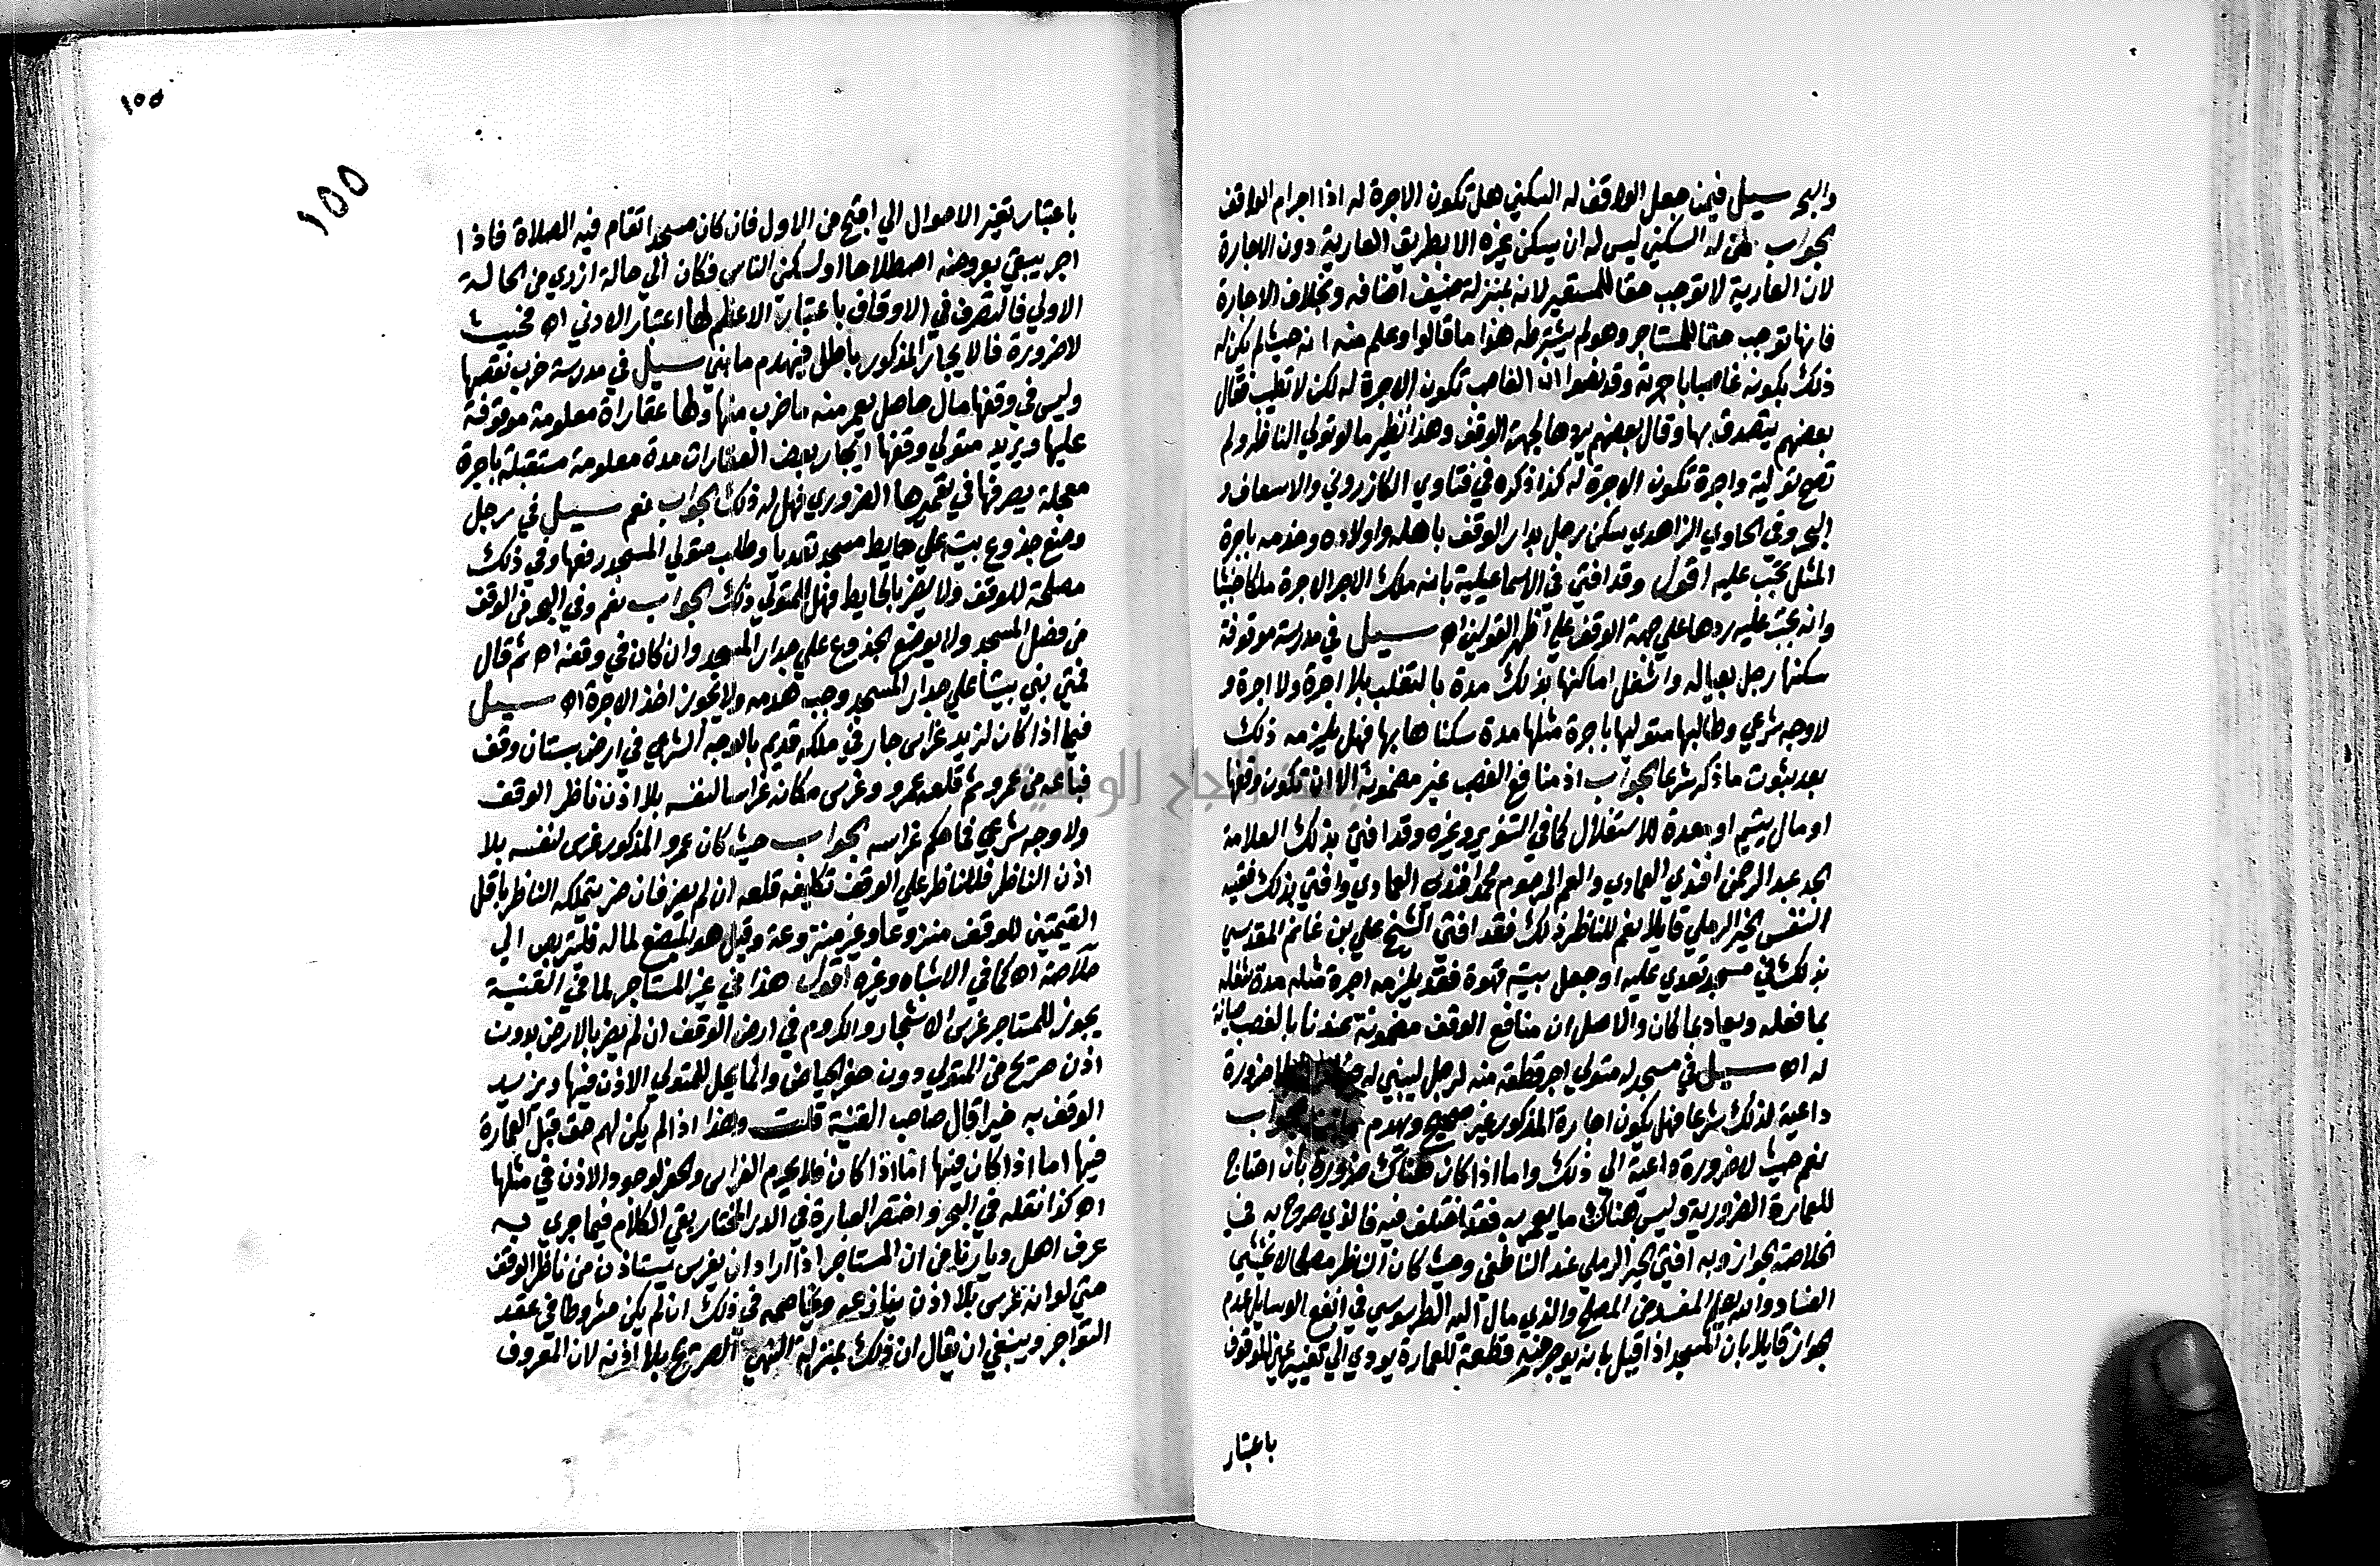 والبحر سيل فيمن جعل الواقف له السكني هل تكون الاجرة له اذا اجرام الواقف
الجواب من له السكني ليس له ان يسكن غيره الا بطريق العارية دون الاجارة
لان العارية لا توجب حقا للمستعير لانه بمنزلة ضيف اضافه وبخلاف الاجارة
فانها توجب حقا للمستاجر وهو لم يشترطه هذا ما قالوا وعلم منه انه حيث لم يكن له
ذلك يكون غاصبا باجرته وقد نصوا ان الغاصب تكون الاجرة له لكن لا تطيب فقال
بعضهم يتصدق بها وقال بعضهم يردها لجهة الوقف وهذا نظير ما لو تولي الناظر ولم
تصح توليته واجرة تكون الاجرة له كذا ذكره في فتاوي الكازروني والاسعاف و
البحر وفي الحاوي الزاهدي سكن رجل بدار الوقف باهله واولاده وخدمه باجرة
المثل يجب عليه اقول وقد افتي في الاسماعيلية بانه ملك الاجر الاجرة ملكا خبيثا
وانه يجب عليه ردها علي جهة الوقف علي اظهر القولين اه سيل في مدرسة موقوفة
سكنها رجل بعياله واشغل اماكنها بذلك مدة بالتغلب بلا اجرة ولا اجرة و
لا وجه شرعي وطالبها متوليها باجرة مثلها مدة سكناها بها فهل يلزمه ذلك
بعد ثبوت ما ذكر شرعا الجواب اذ منافع الغصب غير مضمونة الا ان تكون وقفا
او مال يتيم او معدة للاستغلال كما في التنوير وغيره وقد افتي بذلك العلامة
الجد عبد الرحمن افندي العمادي والعم المرحوم محمد افندي العمادي وافتي بذلك فقيه
النفس الخير الرملي قايلا نعم للناظر ذلك فقد افتي الشيخ علي بن غانم المقدسي
بذلك في مسجد تعدي عليه او جعل بيت قهوة فقد يلزمه اجرة مثله مدة شغله
بما فعله ويعاد كما كان والاصل ان منافع الوقف مضمونة عندنا بالغصب صيانة
له اه سيل في مسجد له متولي اجر قطعة منه لرجل ليبني له ضرورة
داعية لذلك شرعا فهل يكون اجارة المذكور غير صحيح ويهدم
نعم حيث لا ضرورة داعية الي ذلك واما اذا كان هناك ضرورة بان احتاج
للعمارة الضرورية وليس هناك ما يعمر به فقد اختلف فيه فالذي صرح به في
الخلاصة الجواز وبه افتي الخير الرملي عند الناطفي وحيث كان الناظر مصلحا لا يخشي
الفساد والله يعلم المفسد من المصلح والذي مال اليه الطرسوسي في انفع الوسايل عدم
الجواز قايلا بان المسجد اذا قيل بانه يوجر منه قطعة للعمارة يودي الي تغيير عين الموقوف
باعتبار
١٥٥
١٥٥
باعتبار تغير الاحوال الي اقبح من الاول فان كان مسجدا تقام فيه الصلاة فاذا
اجر يبقي بعروضه اصطلاحا او لسكني الناس فكان الي حالة ازدي من الحالة
الاولي فالتصرف في الاوقاف باعتبار الاعلم لها اعتبار الادني اه فحيث
لا ضرورة فالايجار المذكور باطل فيهدم ما بني سيل في مدرسة خرب بعضها
وليس في وقفها مال حاصل يعمر منه ما خرب منها ولها عقاراة معلومة موقوفة
عليها ويريد متولي وقفها ايجار بعض العقارات مدة معلومة مستقبلة باجرة
معجلة يصرفها في تعميرها الضروري فهل له ذلك الجواب نعم سيل في رجل
وضع جذوع بيت علي حايط مسجد تعديا وطلب متولي المسجد رفعها وفي ذلك
مصلحة للوقف ولا يضر بالحايط فهل للمتولي ذلك الجواب نعم وفي البحر من الوقف
من فضل المسجد ولا يوضع الجذوع علي جدار المسجد وان كان في وقفه اه ثم قال
فمتي بني بيتا علي جدار المسجد وجب هدمه ولا يجوز اخذ الاجرة اه سيل
فيما اذا كان لزيد غراس جار في ملكه قديم بالوجه الشرعي في ارض بستان وقف
فباعه من عمرو ثم قلعه عمرو وغرس مكانه غراسا لنفسه بلا اذن ناظر الوقف
ولا وجه شرعي فما حكم غراسه الجواب حيث كان عمرو المذكور غرس لنفسه بلا
اذن الناظر فللناظر علي الوقف تكليفه قلعه ان لم يضر فان ضر يتملكه الناظر باقل
القيمتين للوقف منزوعا وغير منزوعة وقيل هو المضيع لماله فليتربص الي
خلاصه اه كما في الاشباه وغيره اقول هذا في غير المستاجر لما في القنية
يجوز للمستاجر غرس الاشجار والكروم في ارض الوقف ان لم يضر بالارض بدون
اذن صريح من المتولي دون حفر الحياض وانما يحل للمتولي الاذن فيها ويزيد
الوقف به خيرا قال صاحب القنية قلت وهذا اذا لم يكن لهم حق قبل العمارة
فيها اما اذا كان فيها اما اذا كان فلا يحرم الغراس والحفر لوجود الاذن في مثلها
اه كذا نقله في البحر واختصر العبارة في الدر المختار بقي الكلام فيما جري به
عرف اهل ديارنا من ان المستاجر اذا اراد ان يغرس يستاذن من ناظر الوقف
حتي لو انه غرس بلا اذن ينازعه ويخاصمه في ذلك ان لم يكن مشروطا في عقد
التواجر وينبغي ان يقال ان ذلك بمنزلة النهي الصريح بلا اذنه لان المعروف